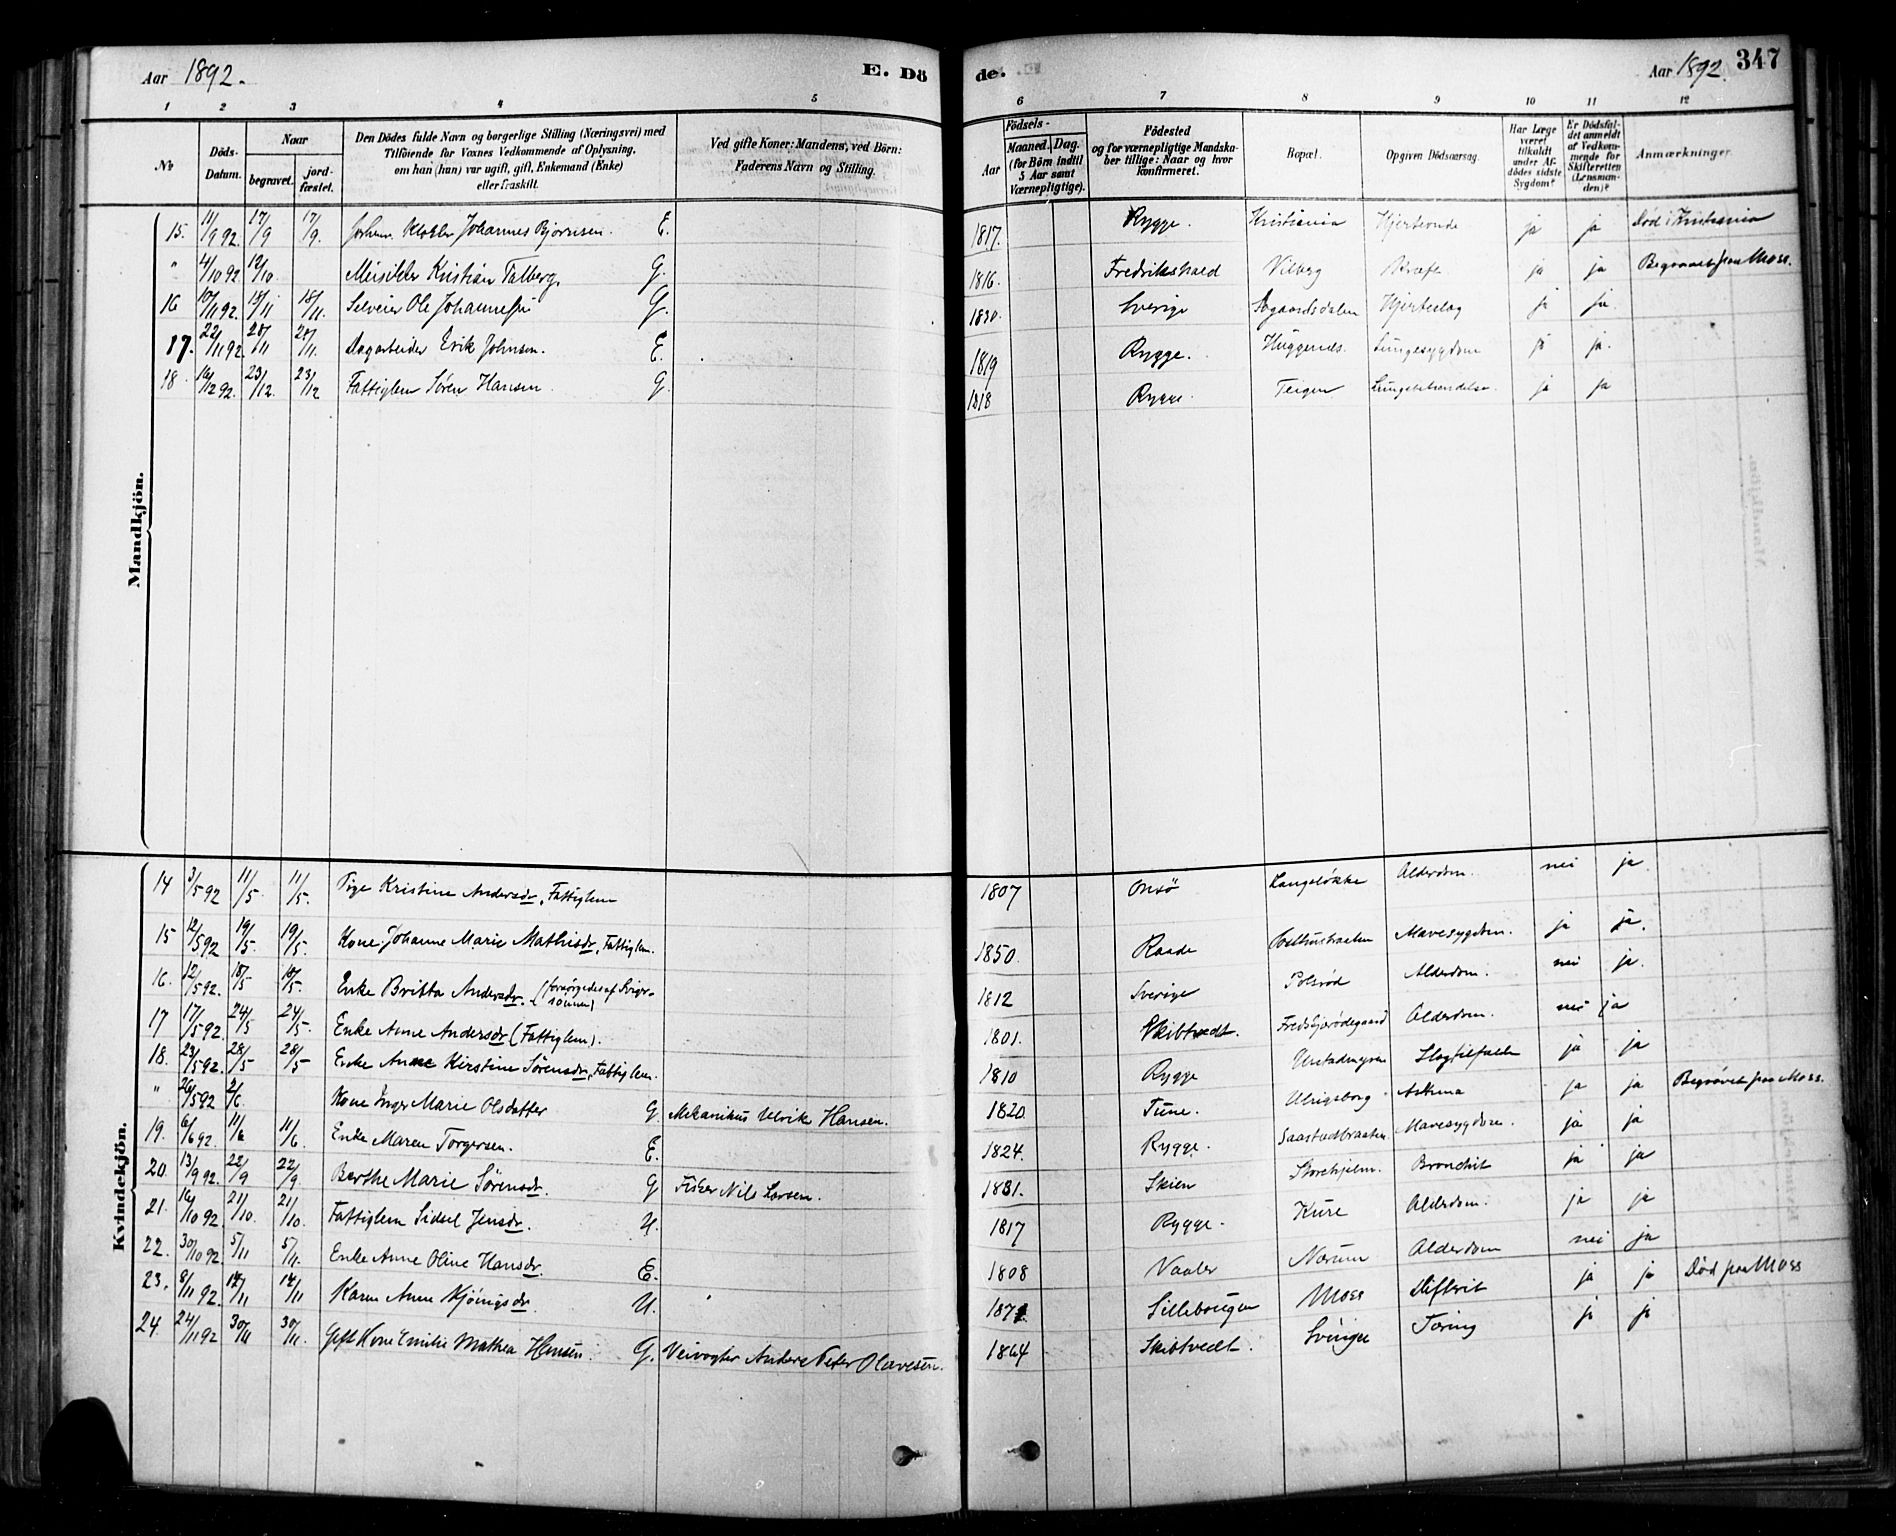 Aar 1892. E. Dö de. Aar 1892. 347
1 2 3 4 5 6 7 8 9 10 11 12
No
Döds-Datum.
Naar
begravet. jordfæstet.
Den Dödes fulde Navn og borgerlige Stilling (Næringsvei) med
Tilföiende for Voxnes Vedkommende af Oplysning,
om han (hun) var ugift, gift, Enkemand (Enke)
eller fraskilt.
Ved gifte Koner: Mandens, ved Börn:
Faderens Navn og Stilling.
Födsels-
Aar Maaned. Dag.
(for Börn indtil
5 Aar samt
Værnepligtige).
Födested
og for værnepligtige Mandskaber tillige: Naar og hvor
konfirmeret.
Bopæl.
Opgiven Dödsaarsag.
Har Læge
været
tilkaldt
under Afdödes sidste
Sygdom?
Er Dödsfaldet anmeldt
af Vedkommende for
Skifteretten
(Lensmanden)?
Anmærkninger.
Mandkjön.
15. 11/9 92. 17/9 17/9. Johannes Bjørnsen. E. 1817. Rygge. Kristiania ja ja Død i Kristiania
" 4/10 92. 12/10. Kristian Talberg. G. 1816. Fredrikshald Vilberg Kræft ja ja Begravet paa Moss.
16 10/11 92. 15/11 18/11. Seleier Ole Johannessen G. 1830. Sverige Hjerteslag ja ja.
17. 22/11 92. 28/11 28/11. Dagarbeider Erik Johnsen. E. 1819 Rygge. Huggenæs. Lungesygdom ja ja.
18 16/12 92. 23/12. 23/12 Fattiglem Søren Hansen. G. 1818 Rygge. Teigen Lungebetændelse. ja ja
Kvindekjön.
14 3/5 92 11/5. 11/5. Pige Kristine Andersdr, Fattiglem 1807 Onsø Langeløkke Alderdom. nei ja.
15 12/5 92 19/5. 19/5. Kone Johanne Marie Mathisdr, Fattiglem. 1850. Raade Mavesygdom. ja ja.
16. 12/5 92. 18/5 18/5. Enke Britta Andersdr. (forsørgedes af Svigersønnen) 1812 Sverige Polsrød Alderdom. nei ja.
17 17/5 92. 24/5 24/5. Enke Anne Andersdr (Fattiglem). 1801. Skibtvedt. Alderdom. nei ja
18. 23/5 92. 28/5 28/5 Enke Anne Kirstine Sørensdr, Fattiglem. 1810 Rygge Slagtilfælde ja ja
" 26/5 92 2/6. Kone Inger Marie Olsdatter G. Mekanikus Ulrik Hansen. 1820 Tune. Ulrigsborg. Asthma ja ja Begravet paa Moss.
19. 6/6 92. 11/6 11/6. Enke Maren Torgersen. E. 1824. Rygge. Saastadbraaten Mavesygdom. ja ja
20. 13/9 92. 22/9 22/9. Berthe Marie Sørensdr. G Fisker Nils Larsen. 1831. Skien Storehjelm. Bronchit ja ja
21. 16/10 92. 21/10. 21/10. Fattiglem Sidsel Jensdr. U. 1817 Rygge. Kure Alderdom. ja ja
22. 30/10 92. 5/11 5/11. Enke Anne Oline Hansdr. E. 1808 Vaaler Norum Alderdom nei ja
23. 8/11 92. 14/11 14/11 Karen Anne U. 1871 Moss Difterit ja ja Død paa Moss
24. 24/11 92 30/11 30/11. Gift Kone Emilie Mathea Hansen. G. Veivogter Anders Peter Olavesen. 1864 Skibtvedt. Svinger Tæring ja ja